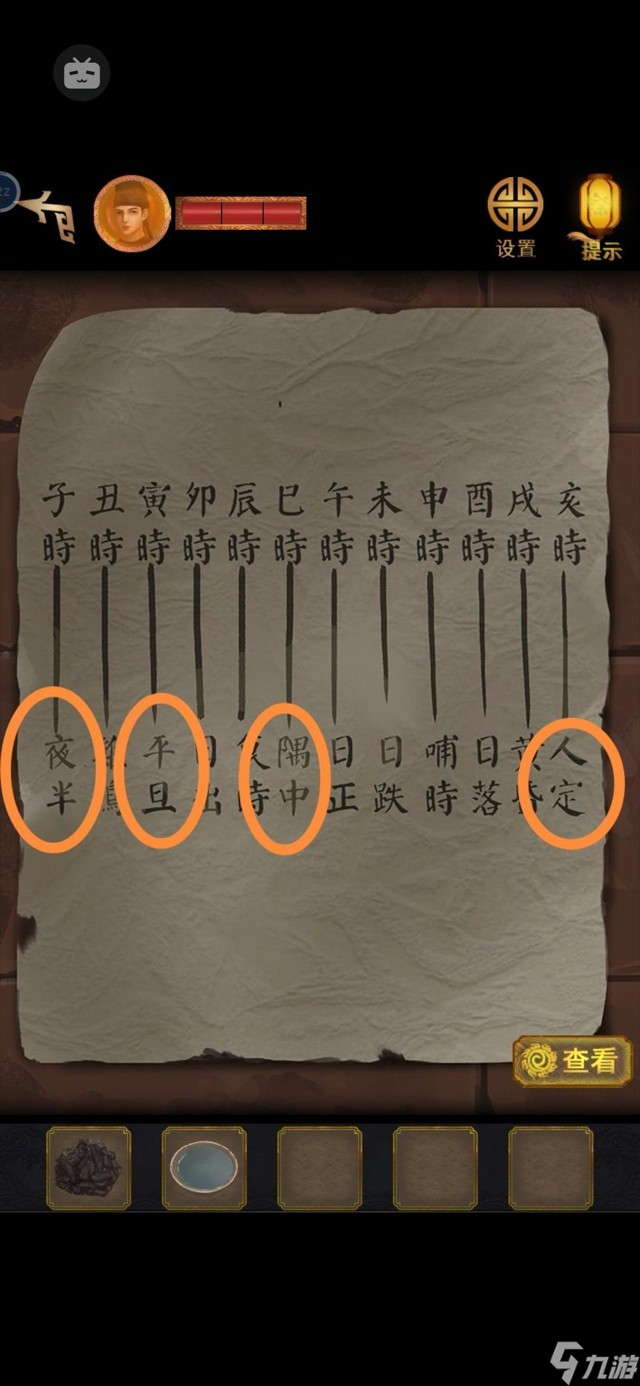 zz
设置
提示
子 丑 寅 卯 辰 巳 午 未 申 酉 戌 亥
時 時 時 時 時 時 時 時 時 時 時 時
夜 平 隅 日 日 哺 日 黄 人
半 旦 出 時 中 正 跌 時 落 定
查看
九游